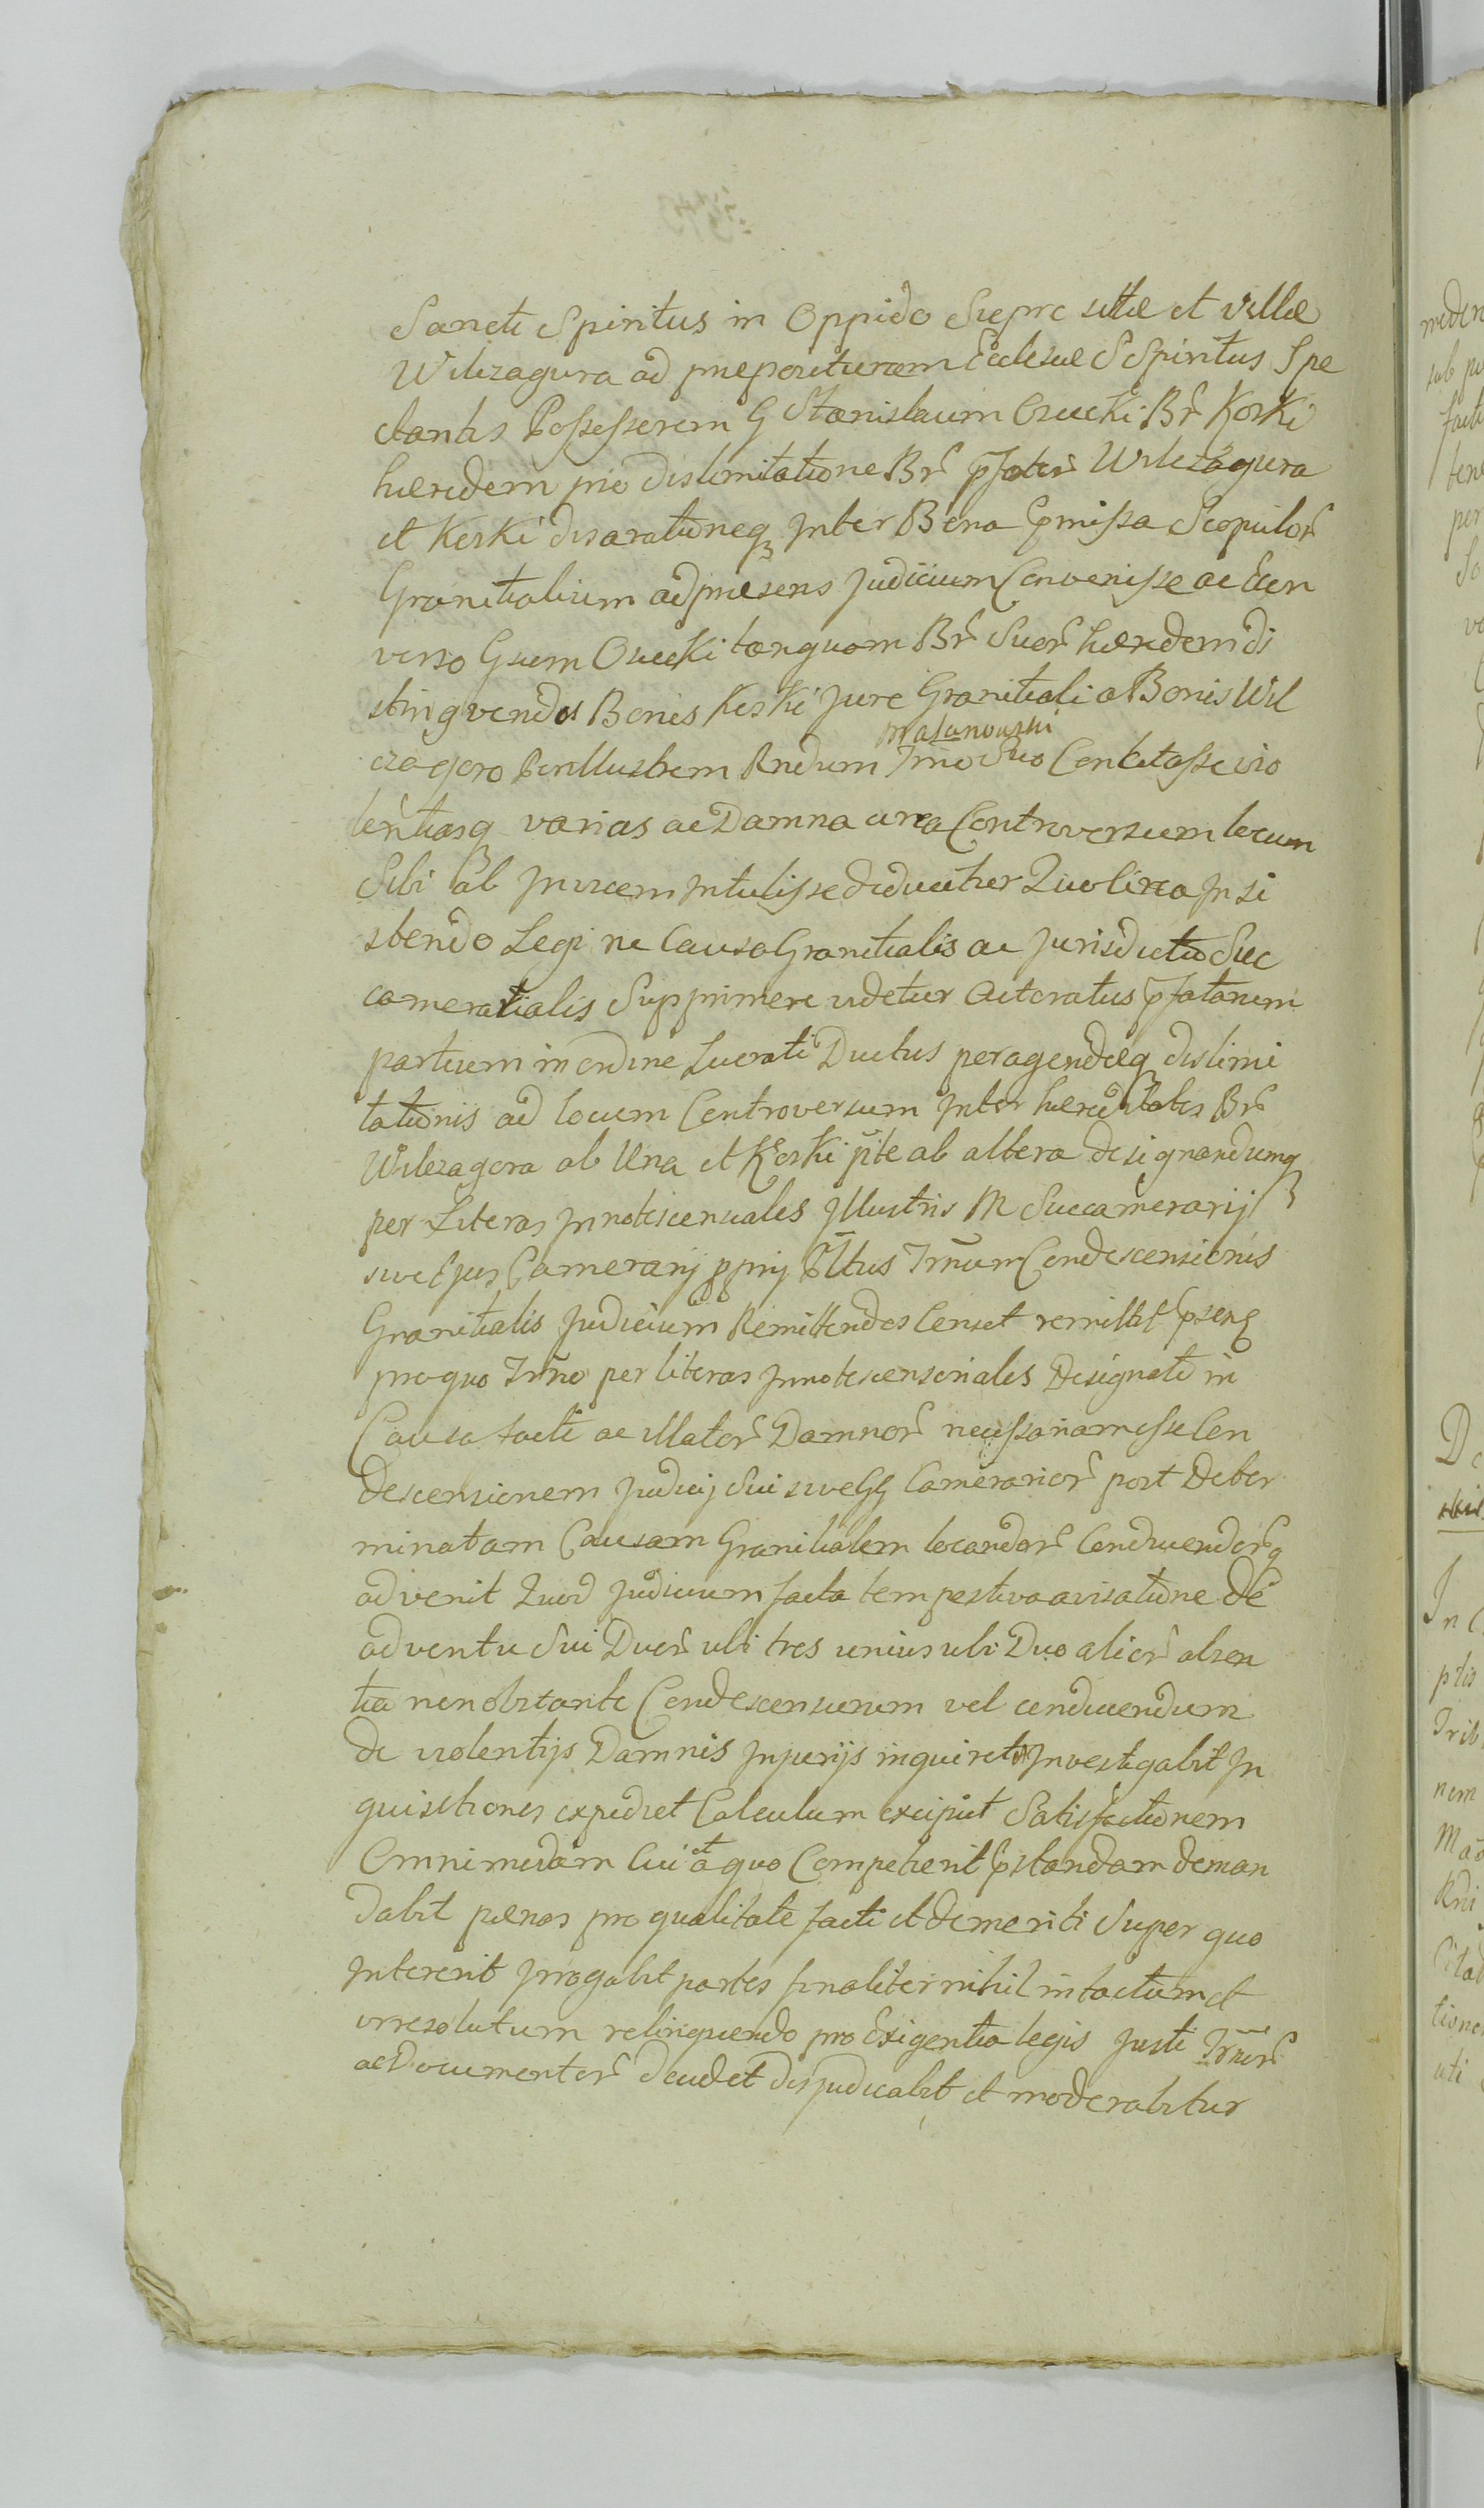 Sancti Spiritus in Oppido Sieprc sitæ et Villæ
Wilczagura ad præposituram Ecclesiæ S Spiritus Spe
ctantis Possessorem G Stanislaum Osucki Brũ Koski
hæredem pro dislimitatione Brũ p̃fatorũ Wilczagura
et Koski disarationeq3 Inter Bona p̃missa Scopulorũ
Granitialium ad præsens Judicium Convenisse ac Econ
verso Gsum Osucki tanquam Brũ Suorũ hæredem di
stingvendis Bonis Koski Jure Granitiali a Bonis Wil
Masunowski
czagora Perillustrem Rndum Tr̃no Suo Concitasse vio
lentiasq3 varias ac Damna circa Controversum locum
Sibi ab Invicem Intulisse diducitur Quo circa Insi
stendo Legi ne Causa Granitialis ac Jurisdictio Suc
camerarialis Supprimere videtur Actoratus p̃fatarum
partium in ordine Lucrati Ductus peragendæq3 dislimi
tationis ad locum Controversum Inter hæreditates Brũ
Wilczagora ab Una et Koski p̃te ab altera designandumq3
per Literas Innotescensiales Illustris M Succamerarij
sive Ejus Camerarij p̱prij p̃ltus Tr̃num Condescensionis
Granitialis Judicium Remittendos Censet remittit p̃senq
pro quo Tr̃no per literas Innotescensoriales Designato in
Causa facti ac illatorũ Damnorũ necessariam esse Con
descensionem Judicij Sui sive GG Camerariorũ post Deter
minatam Causam Granitialem locandorũ Conducendorũq
advenit Quod Judicium facta tempestiva avisatione de
adventu Sui Duorũ ubi tres unius ubi Duo aliorũ absen
tia non obstante Condescensurum vel conducendum
de violentijs Damnis Injurijs inquiret Investigabit In
quisitiones expediet Calculum excipiet Satisfactionem
Omnimodam Cui et a quo Competierit p̃standam deman
dabit pœnas pro qualitate facti et demeriti Super quo
Intererit Irrogabit partes finaliter nihil intactum et
irresolutum relinquendo pro Exigentia legis Justi Tr̃norũ
ac Documentorũ decidet disjudicabit et moderabitur